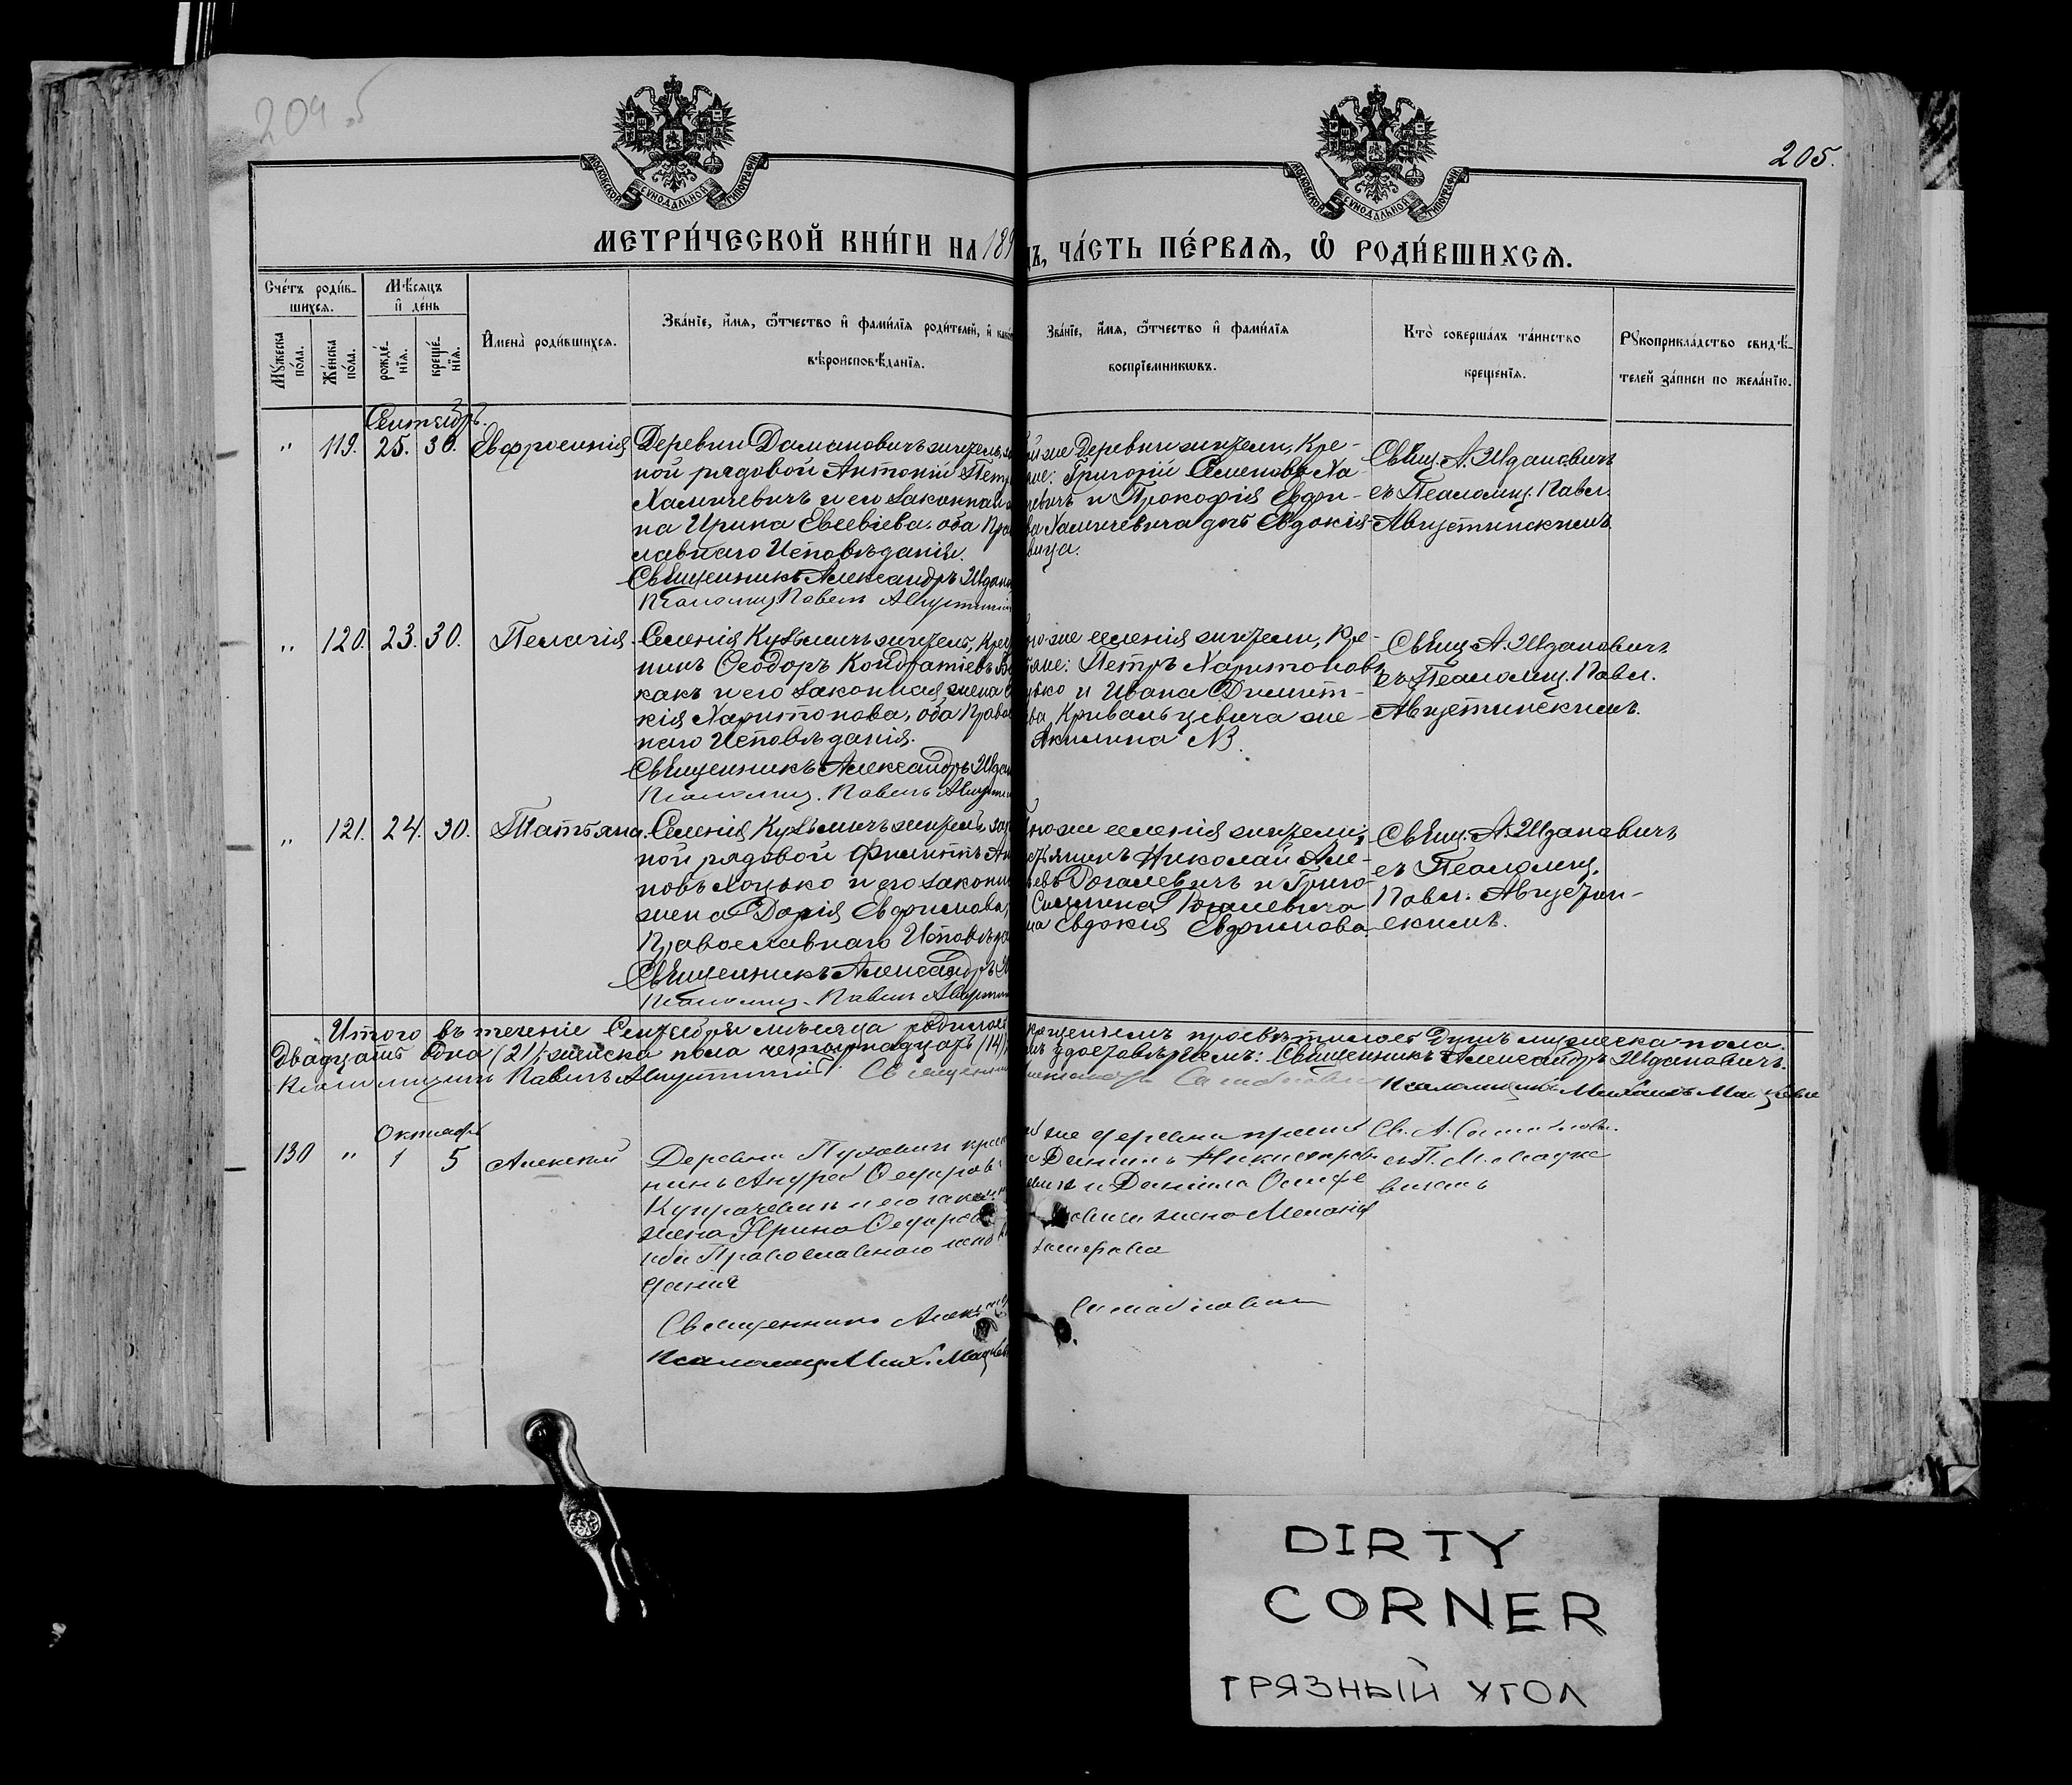 204 об
205.
МОСКОВСКОЙ СѴНОДАЛЬНОЙ ТИПОГРАФІИ
МОСКОВСКОЙ СѴНОДАЛЬНОЙ ТИПОГРАФІИ
МЕТРИ́ЧЕСКОЙ КНИ́ГИ НА 189
ДЪ, ЧА́СТЬ ПЕ́РВАЯ, Ѽ РОДИ́ВШИХСЯ.
Сче́тъ роди́в-
шихся.
Мѣ́сяцъ
и҆ де́нь
Мꙋ́жеска по́ла.
Же́нска по́ла.
рожде́-нїя.
креще́-нїя.
И҆мена̀ роди́вшихся.
Зва́нїе, и҆́мя, ѻ҆́тчество и҆ фами́лїя роди́телей, и҆ како
вѣроисповѣ́данїя.
Зва́нїе, и҆́мя, ѻ҆́тчество и҆ фами́лїя
воспрїе́мникѡвъ.
Кто̀ соверша́лъ та́инство
креще́нїя.
Рꙋкоприкла́дство свидѣ́-
телей за́писи по жела́нїю.
Сентябрь.
" 119. 25. 30. Евфросинія Деревни Дамановичъ житель, за
ной рядовой Антоній Петр
Халичевичъ и его законная
на Ирина Евсевіева, оба Пра
славнаго Исповѣданія.
Священникъ Александръ Ждано
Псаломщ. Павелъ Августин
ой же деревни жители, Кре-
яне: Григорій Семеновъ Ха
евичъ и Прокофія Евфи-
ва Халичевича дчь Евдокія
вица.
Свящ. А. Жданович
съ Псаломщ. Павл.
Августинскимъ
" 120. 23. 30. Пелагія. Селенія Кузьмичъ житель, Крес
нинъ Ѳеодоръ Кондратіевъ
какъ и его законная жена
кія Харитонова, оба Право
наго Исповѣданія.
Священникъ Александръ Ждан
Псаломщ. Павелъ Августи
го же селенія жители, Кре-
яне: Петръ Харитоновъ
цко и Ивана Димит-
ва Кривальцевича же-
Акилина
Свящ. А. Жданович
съ Псаломщ. Павл.
Августинскимъ.
" 121. 24. 30. Татьяна. Селенія Кузьмичъ житель, зап
ной рядовой Филиппъ
новъ Хоцько и его законн
жена Дарія Евфимова,
Православнаго Исповѣда
Священникъ Александръ
Псаломщ. Павелъ Августи
го же селенія жители,
стьянинъ Николай Але-
евъ Рогалевичъ и Григо
Рогалевича
на Евдокія Евфимова
Свящ. А. Жданович
съ Псаломщ.
Павл. Августин-
скимъ.
Итого въ теченіе Сентября мѣсяца родилось
крещеніемъ просвѣтилось Душъ мужеска пола.
Двадцать одна (21), женска пола четырнадцать (14)
мъ удостовѣряемъ: Священникъ Александръ Жданович.
Псаломщикъ Павелъ Августинскій. Священник
Псаломщикъ Михаилъ Мацкевич
Октябрь
130 " 1 5 Алексѣй Деревни Пуховичи крест
нинъ Андрей Ѳедоровъ
и его законн
жена Ирина Ѳедоров
оба Православнаго испов
данія
Священникъ Алекс
Псаломщ. Мих. Мацкев
же деревни крест
Даніилъ
и Даніила Осипо
жена Меланія
Св. А.
съ П. М. Мацке
вичемъ
DIRTY
CORNER
ГРЯЗНЫЙ УГОЛ